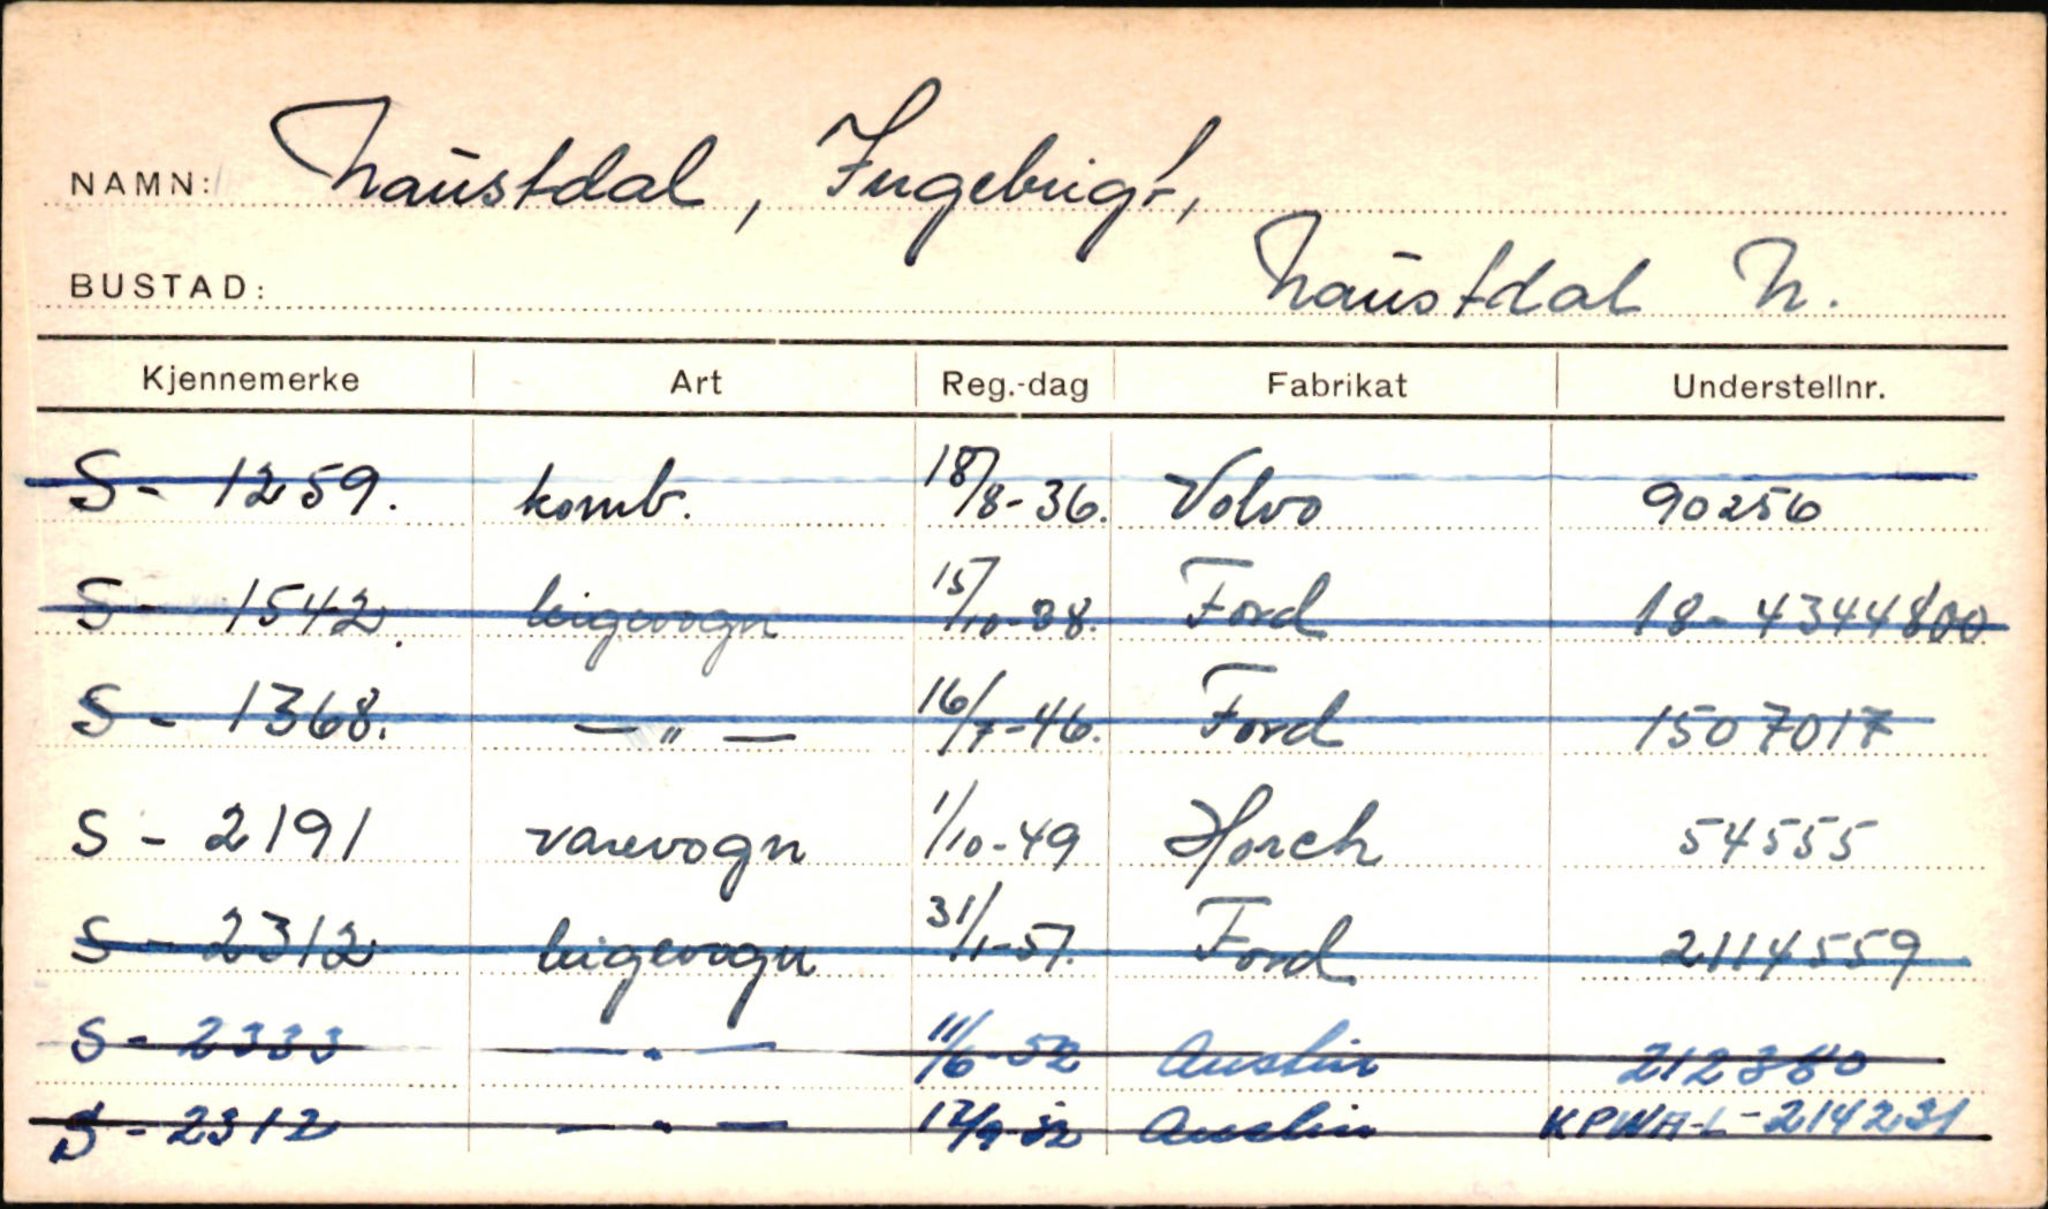 NAMN: Naustdal, Ingebrigt,
BUSTAD: Naustdal N.
Kjennemerke Art Reg.-dag Fabrikat Understellnr.
S - 1259. komb. 18/8-36. Volvo 90256
S - 1542. leigevogn 15/10-38. Ford 18-4344800
S - 1368. — " — 16/7-46. Ford 1507017
S - 2191 varevogn 1/10-49 Horch 54555
S - 2312 leigevogn 31/1-51. Ford 2114559
S - 2333 — " — 11/6-52 Austin 212380
S - 2312 — " — 12/9-52 Austin KPWA-L-214231